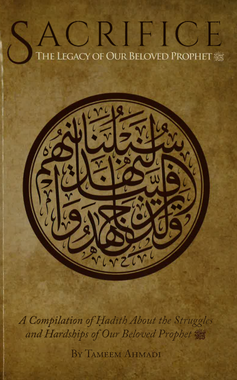 SACRIFICE
THE LEGACY OF OUR BELOVED PROPHET ﷺ
والذين جاهدوا فينا لنهدينهم سبلنا
A Compilation of Hadith About the Struggles
and Hardships of Our Beloved Prophet ﷺ
BY TAMEEM AHMADI